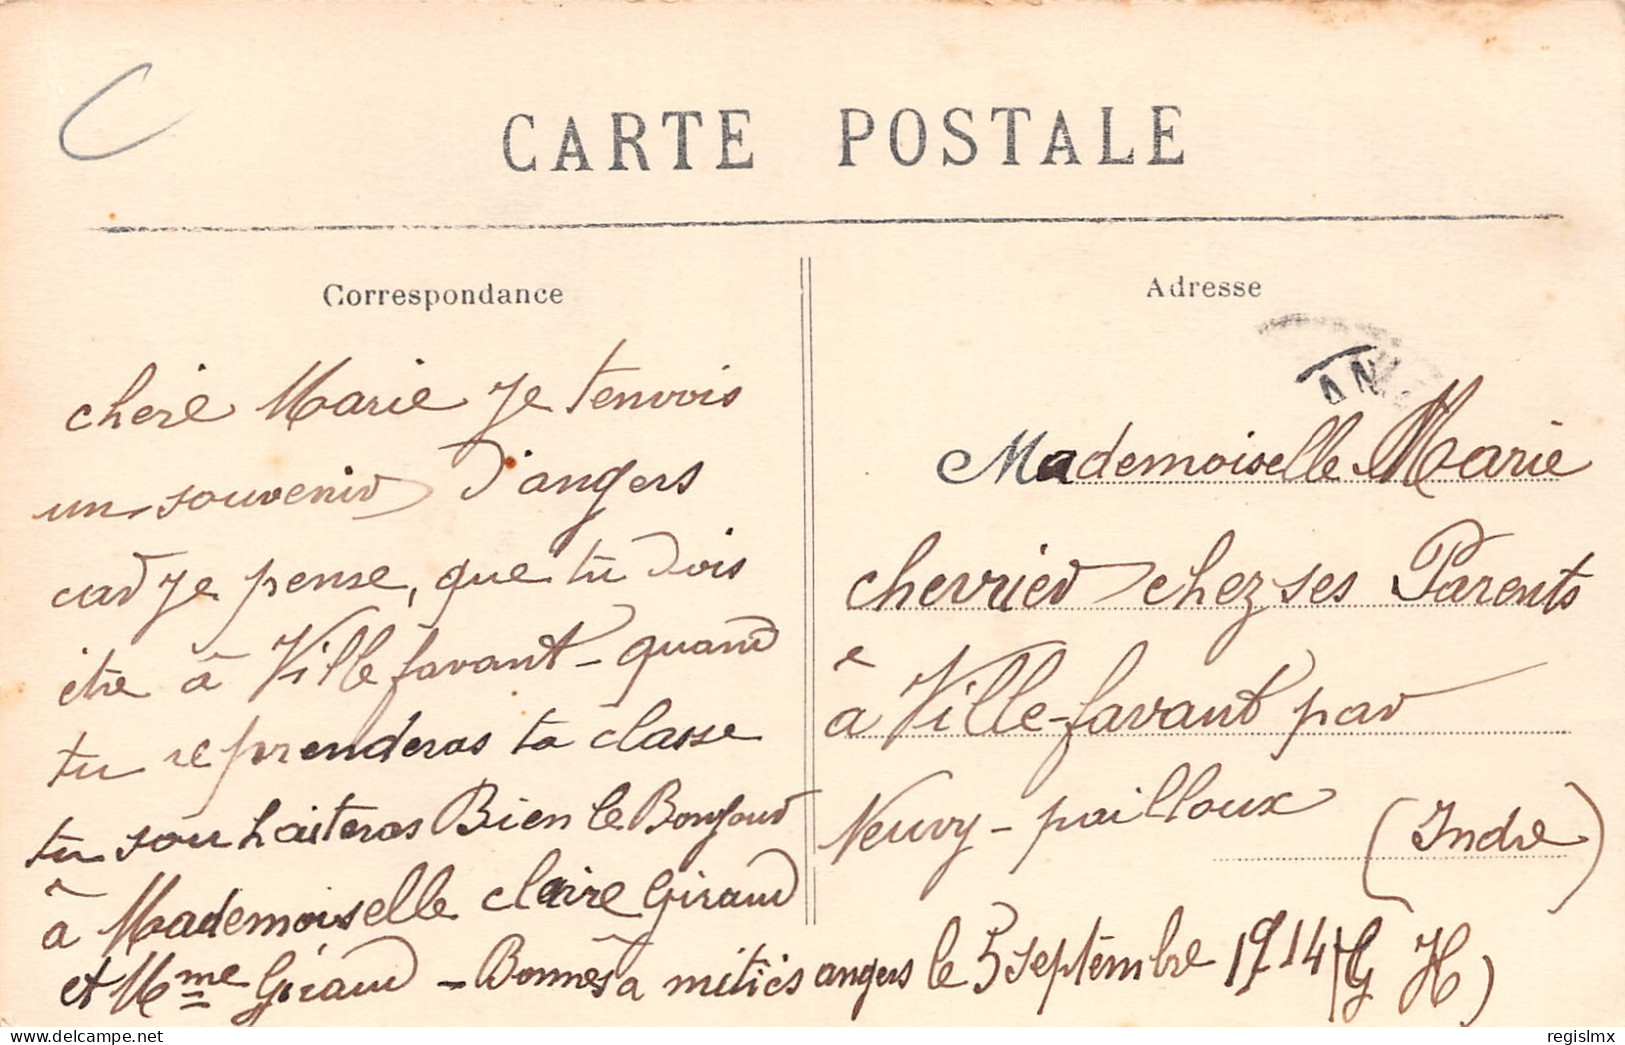 CARTE POSTALE
Correspondance
chère Marie Je tenvois
un souvenir d'angers
car je pense, que tu dois
être à Villefavant - quand
tu reprenderas ta classe
tu souhaiteras Bien le Bonjour
à Mademoiselle claire Giraud
et Mme Giraud - Bonnes amitiés angers le 5 septembre 1914 (G H)
Adresse
AN
Mademoiselle Marie
chevrier chez ses Parents
à Ville-favant par
Neuvy-pailloux (Indre)
www.delcampe.net
regislmx